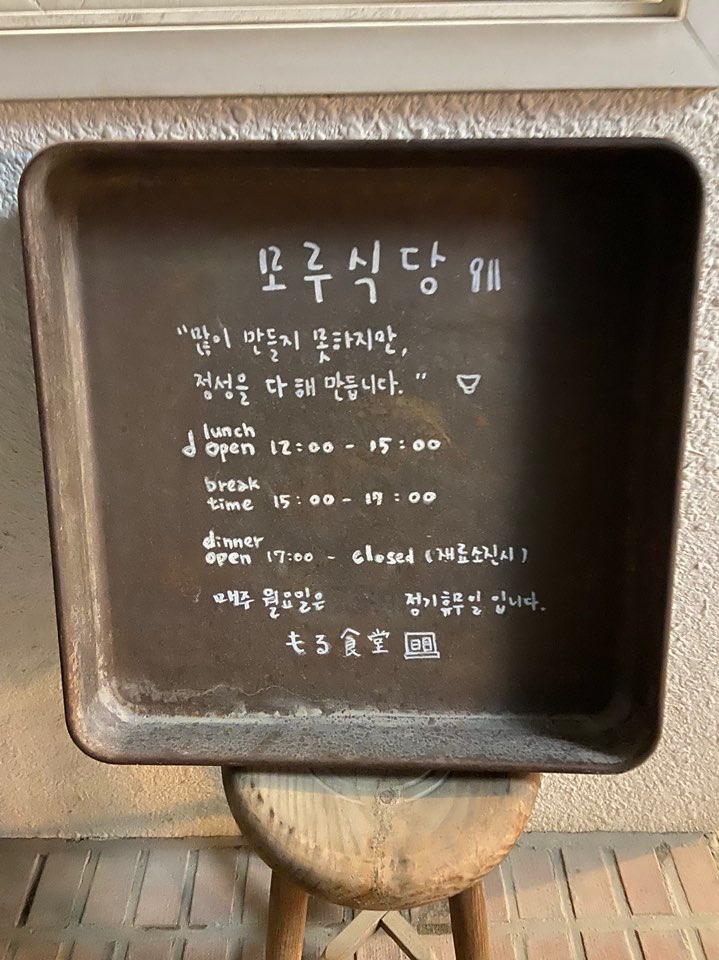 모루식당
"많이 만들지 못하지만,
정성을 다해 만듭니다."
lunch open 12:00 - 15:00
break time 15:00 - 17:00
dinner open 17:00 - closed (재료소진시)
매주 월요일은 정기휴무일 입니다.
もる食堂